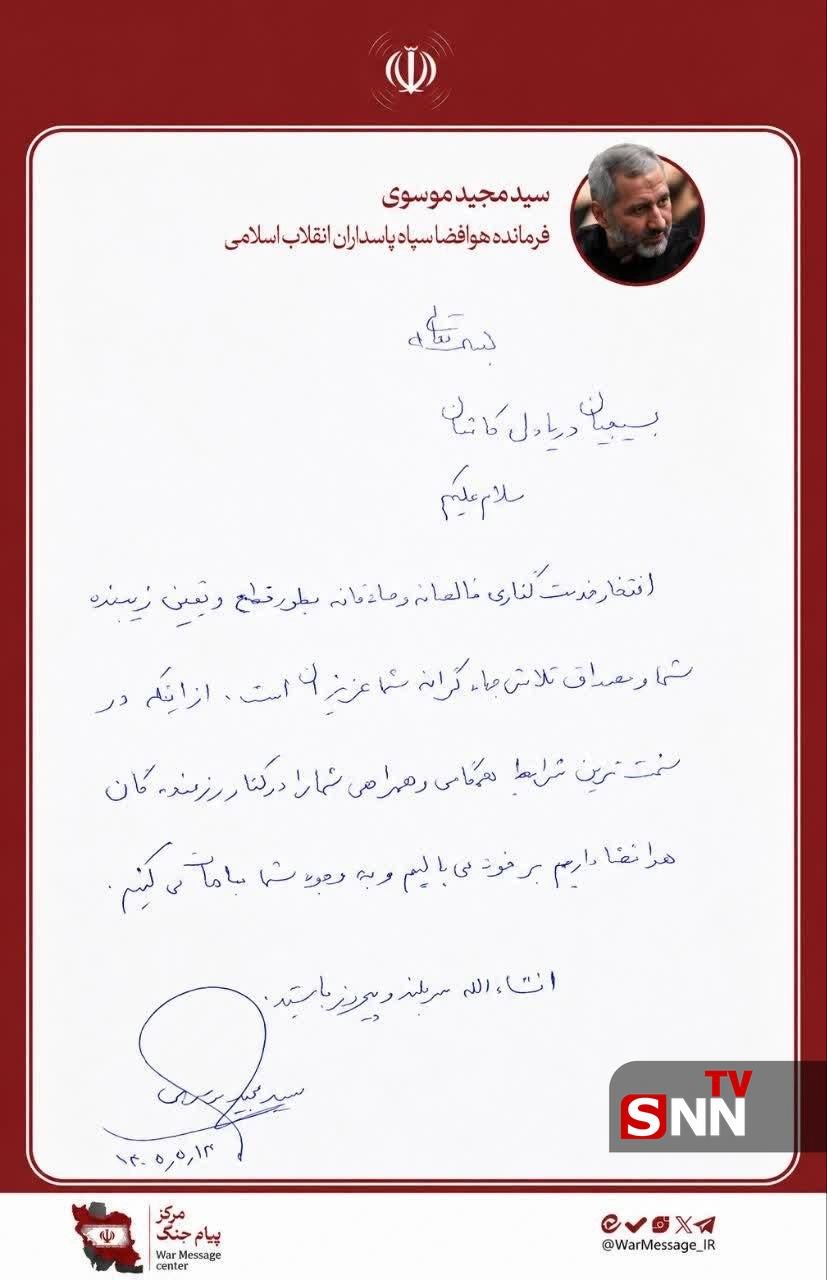 سید مجید موسوی
فرمانده هوافضا سپاه پاسداران انقلاب اسلامی
بسمه تعالی
بسیجیان دریادل کاشان
سلام علیکم
افتخار خدمت گذاری خالصانه و صادقانه بطور قطع و یقین زیبنده
شما و مصداق تلاش جهادگرانه شما عزیزان است. از اینکه در
سخت ترین شرایط همگامی و همراهی شما را در کنار رزمنده گان
هوافضا داریم بر خود می بالیم و به وجود شما مباهات می کنیم.
انشاءالله سربلند و پیروز باشید.
سید مجید موسوی
۱۴۰۵٫۵٫۱۳
SNN TV
مرکز
پیام جنگ
War Message
center
@WarMessage_IR